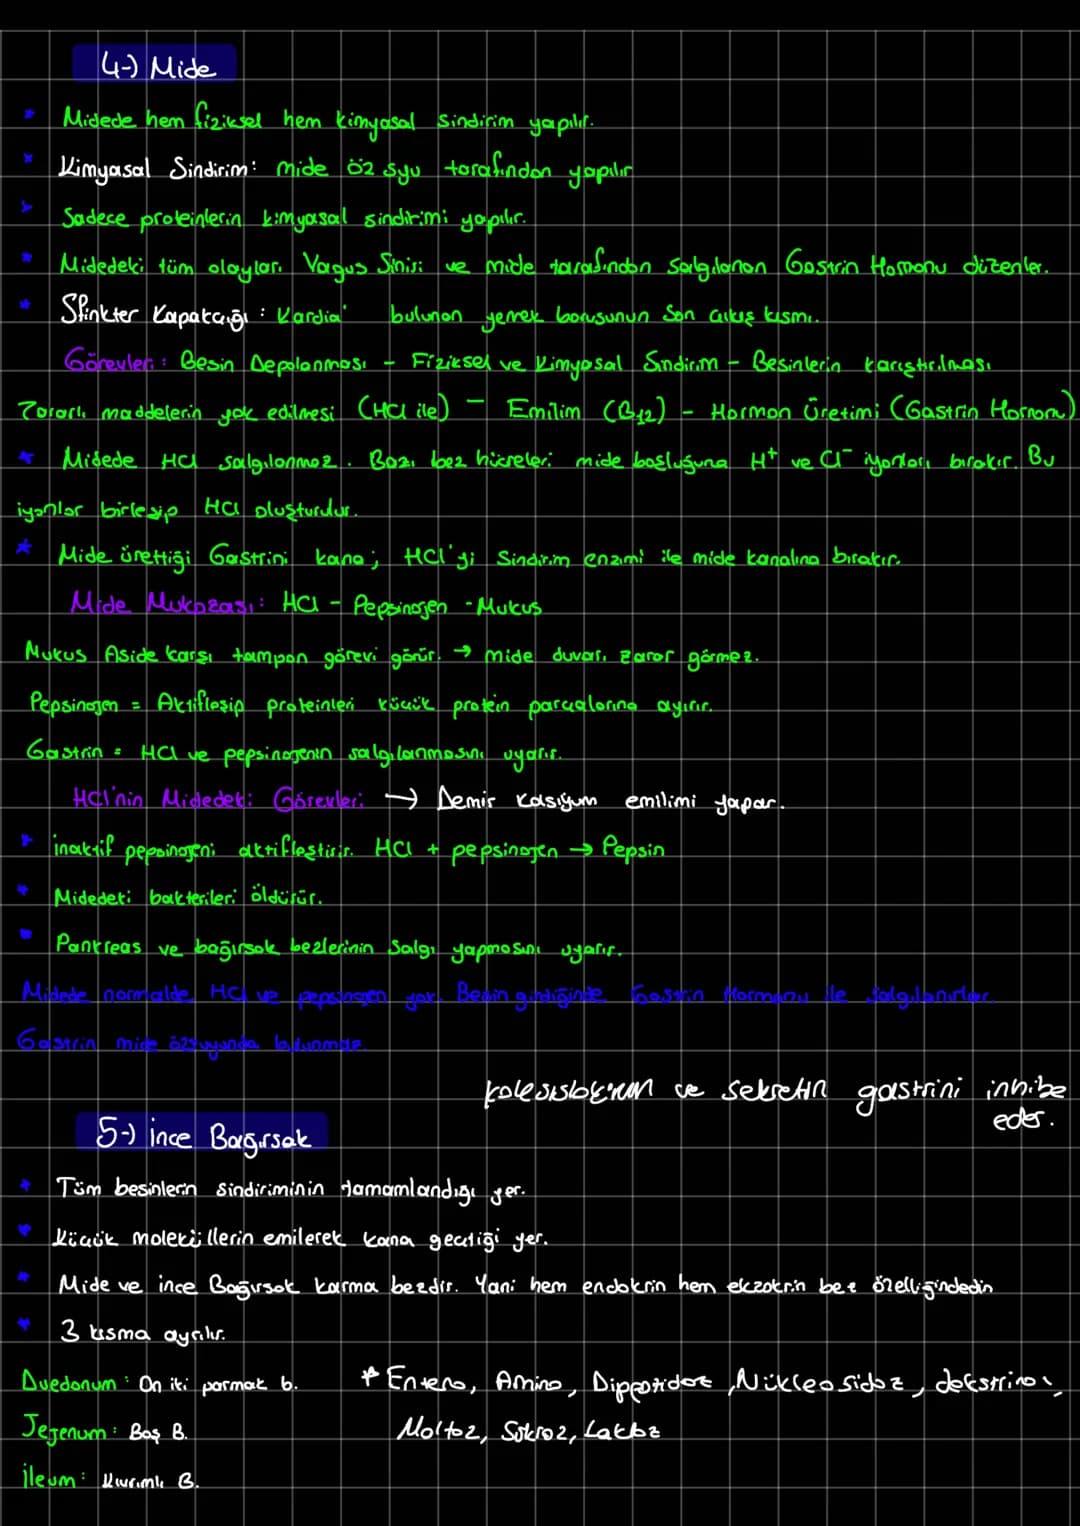 4-) Mide
* Midede hem fiziksel hem kimyasal sindirim yapılır.
* Kimyasal Sindirim: mide öz suyu tarafından yapılır
* Sadece proteinlerin kimyasal sindirimi yapılır.
* Midedeki tüm olayları Vagus Siniri ve mide tarafından salgılanan Gastrin Hormonu düzenler.
* Sfinkter Kapakcığı: Kardia' bulunan yemek borusunun Son çıkış kısmı.
Görevleri: Besin Depolanması - Fiziksel ve Kimyasal Sindirim - Besinlerin karıştırılması
Zararlı maddelerin yok edilmesi (HCl ile) - Emilim (B12) - Hormon Üretimi (Gastrin Hormonu)
* Midede HCl salgılanmaz. Bazı bez hücreleri mide boşluğuna H+ ve Cl- iyonları bırakır. Bu
iyonlar birleşip HCl oluşturulur.
* Mide ürettiği Gastrini kana; HCl'yi Sindirim enzimi ile mide kanalına bırakır.
Mide Mukozası: HCl - Pepsinojen - Mukus
Mukus Aside karşı tampon görevi görür. → mide duvarı zarar görmez.
Pepsinojen = Aktifleşip proteinleri küçük protein parçalarına ayırır.
Gastrin = HCl ve pepsinojenin salgılanmasını uyarır.
HCl'nin Midedeki Görevleri → Demir kalsiyum emilimi yapar.
* inaktif pepsinojeni aktifleştirir. HCl + pepsinojen → Pepsin
* Midedeki bakterileri öldürür.
* Pankreas ve bağırsak bezlerinin Salgı yapmasını uyarır.
Midede normalde HCl ve pepsinojen yok. Besin girdiğinde Gastrin Hormonu ile salgılanırlar.
Gastrin mide özsuyunda bulunmaz.
kolesistokinin ve sekretin gastrini inhibe
eder.
5-) ince Bağırsak
* Tüm besinlerin sindiriminin tamamlandığı yer.
* Küçük moleküllerin emilerek kana geçtiği yer.
* Mide ve ince Bağırsak karma bezdir. Yani hem endokrin hem ekzokrin bez özelliğindedir
* 3 kısma ayrılır.
Duedonum: On iki parmak b. * Entero, Amino, Dippptidaz, Nükleosidaz, dekstrinaz,
Jejenum: Boş B. Maltaz, Sükraz, Laktaz
İleum: Kıvrımlı B.